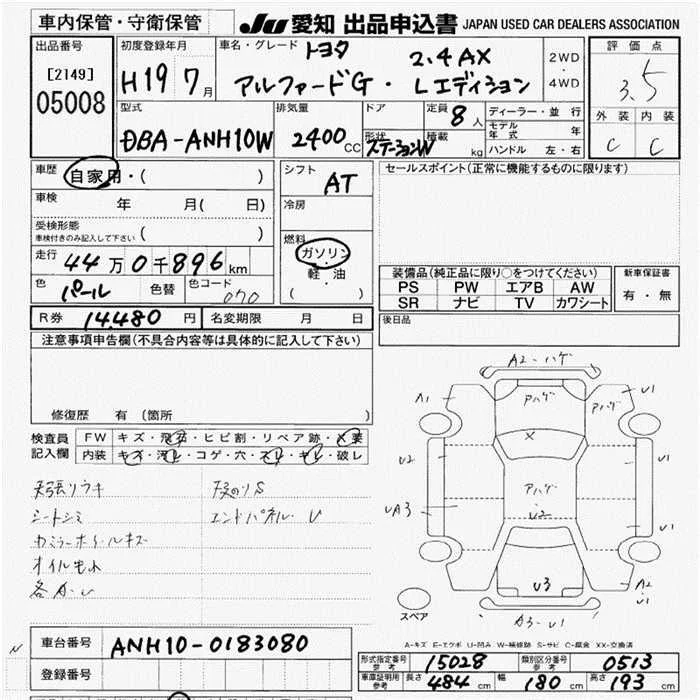 車内保管・守衛保管
JU 愛知 出品申込書 JAPAN USED CAR DEALERS ASSOCIATION
出品番号
[2149]
05008
初度登録年月
H19 7月
車名・グレード
トヨタ 2.4AX
アルファードG・Lエディション
2WD
・
4WD
評価点
3.5
外装 内装
C C
型式
DBA-ANH10W
排気量
2400CC
ドア
形状
ステーションW
定員 8人
積載 kg
ディーラー・並行
モデル年式 年
ハンドル 左・右
車歴
自家用・( )
車検
年 月( 日)
受検形態
車検付きのみ記入して下さい ( )
走行
44万0千896km
色
パール
色替
色コード
070
シフト
AT
冷房
燃料
ガソリン
・
軽油
( )
セールスポイント(正常に機能するものに限ります)
装備品(純正品に限り○をつけてください)
PS PW エアB AW
SR ナビ TV カワシート
新車保証書
有・無
R券 14,480円
名変期限 月 日
後日品
注意事項申告欄(不具合内容等は具体的に記入して下さい)
修復歴 有 (箇所 )
検査員
記入欄
FW キズ・飛石・ヒビ割・リペア跡・X要
内装 キズ・汚レ・コゲ・穴・スレ・キレ・破レ
シートシミ
エンドパネル U
オイルもれ
A2-ハゲ
A1
Aハゲ
Aハゲ
U1
X
U2
U2
Aハゲ
U2
UA3
U1
U3
A2
U1
A3-U1
スペア
A-キズ E-エクボ U-凹み W-補修跡 S-サビ C-腐食 XX-交換済
車台番号
ANH10-0183080
登録番号
N
形式指定番号
参考
15028
類別区分番号
参考
0513
車庫証明用
参考
長さ 484cm 幅 180cm 高さ 193cm